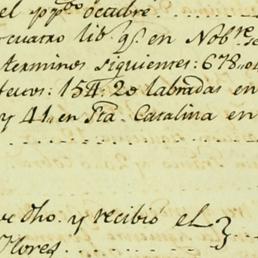 el pp.do octubre
cuatro lib. q.s en Nob.re
terminos siguientes: 678
tecas: 154: 20 labradas en
y 41 en Sta. Catalina en
dho. y recibió el
Flores